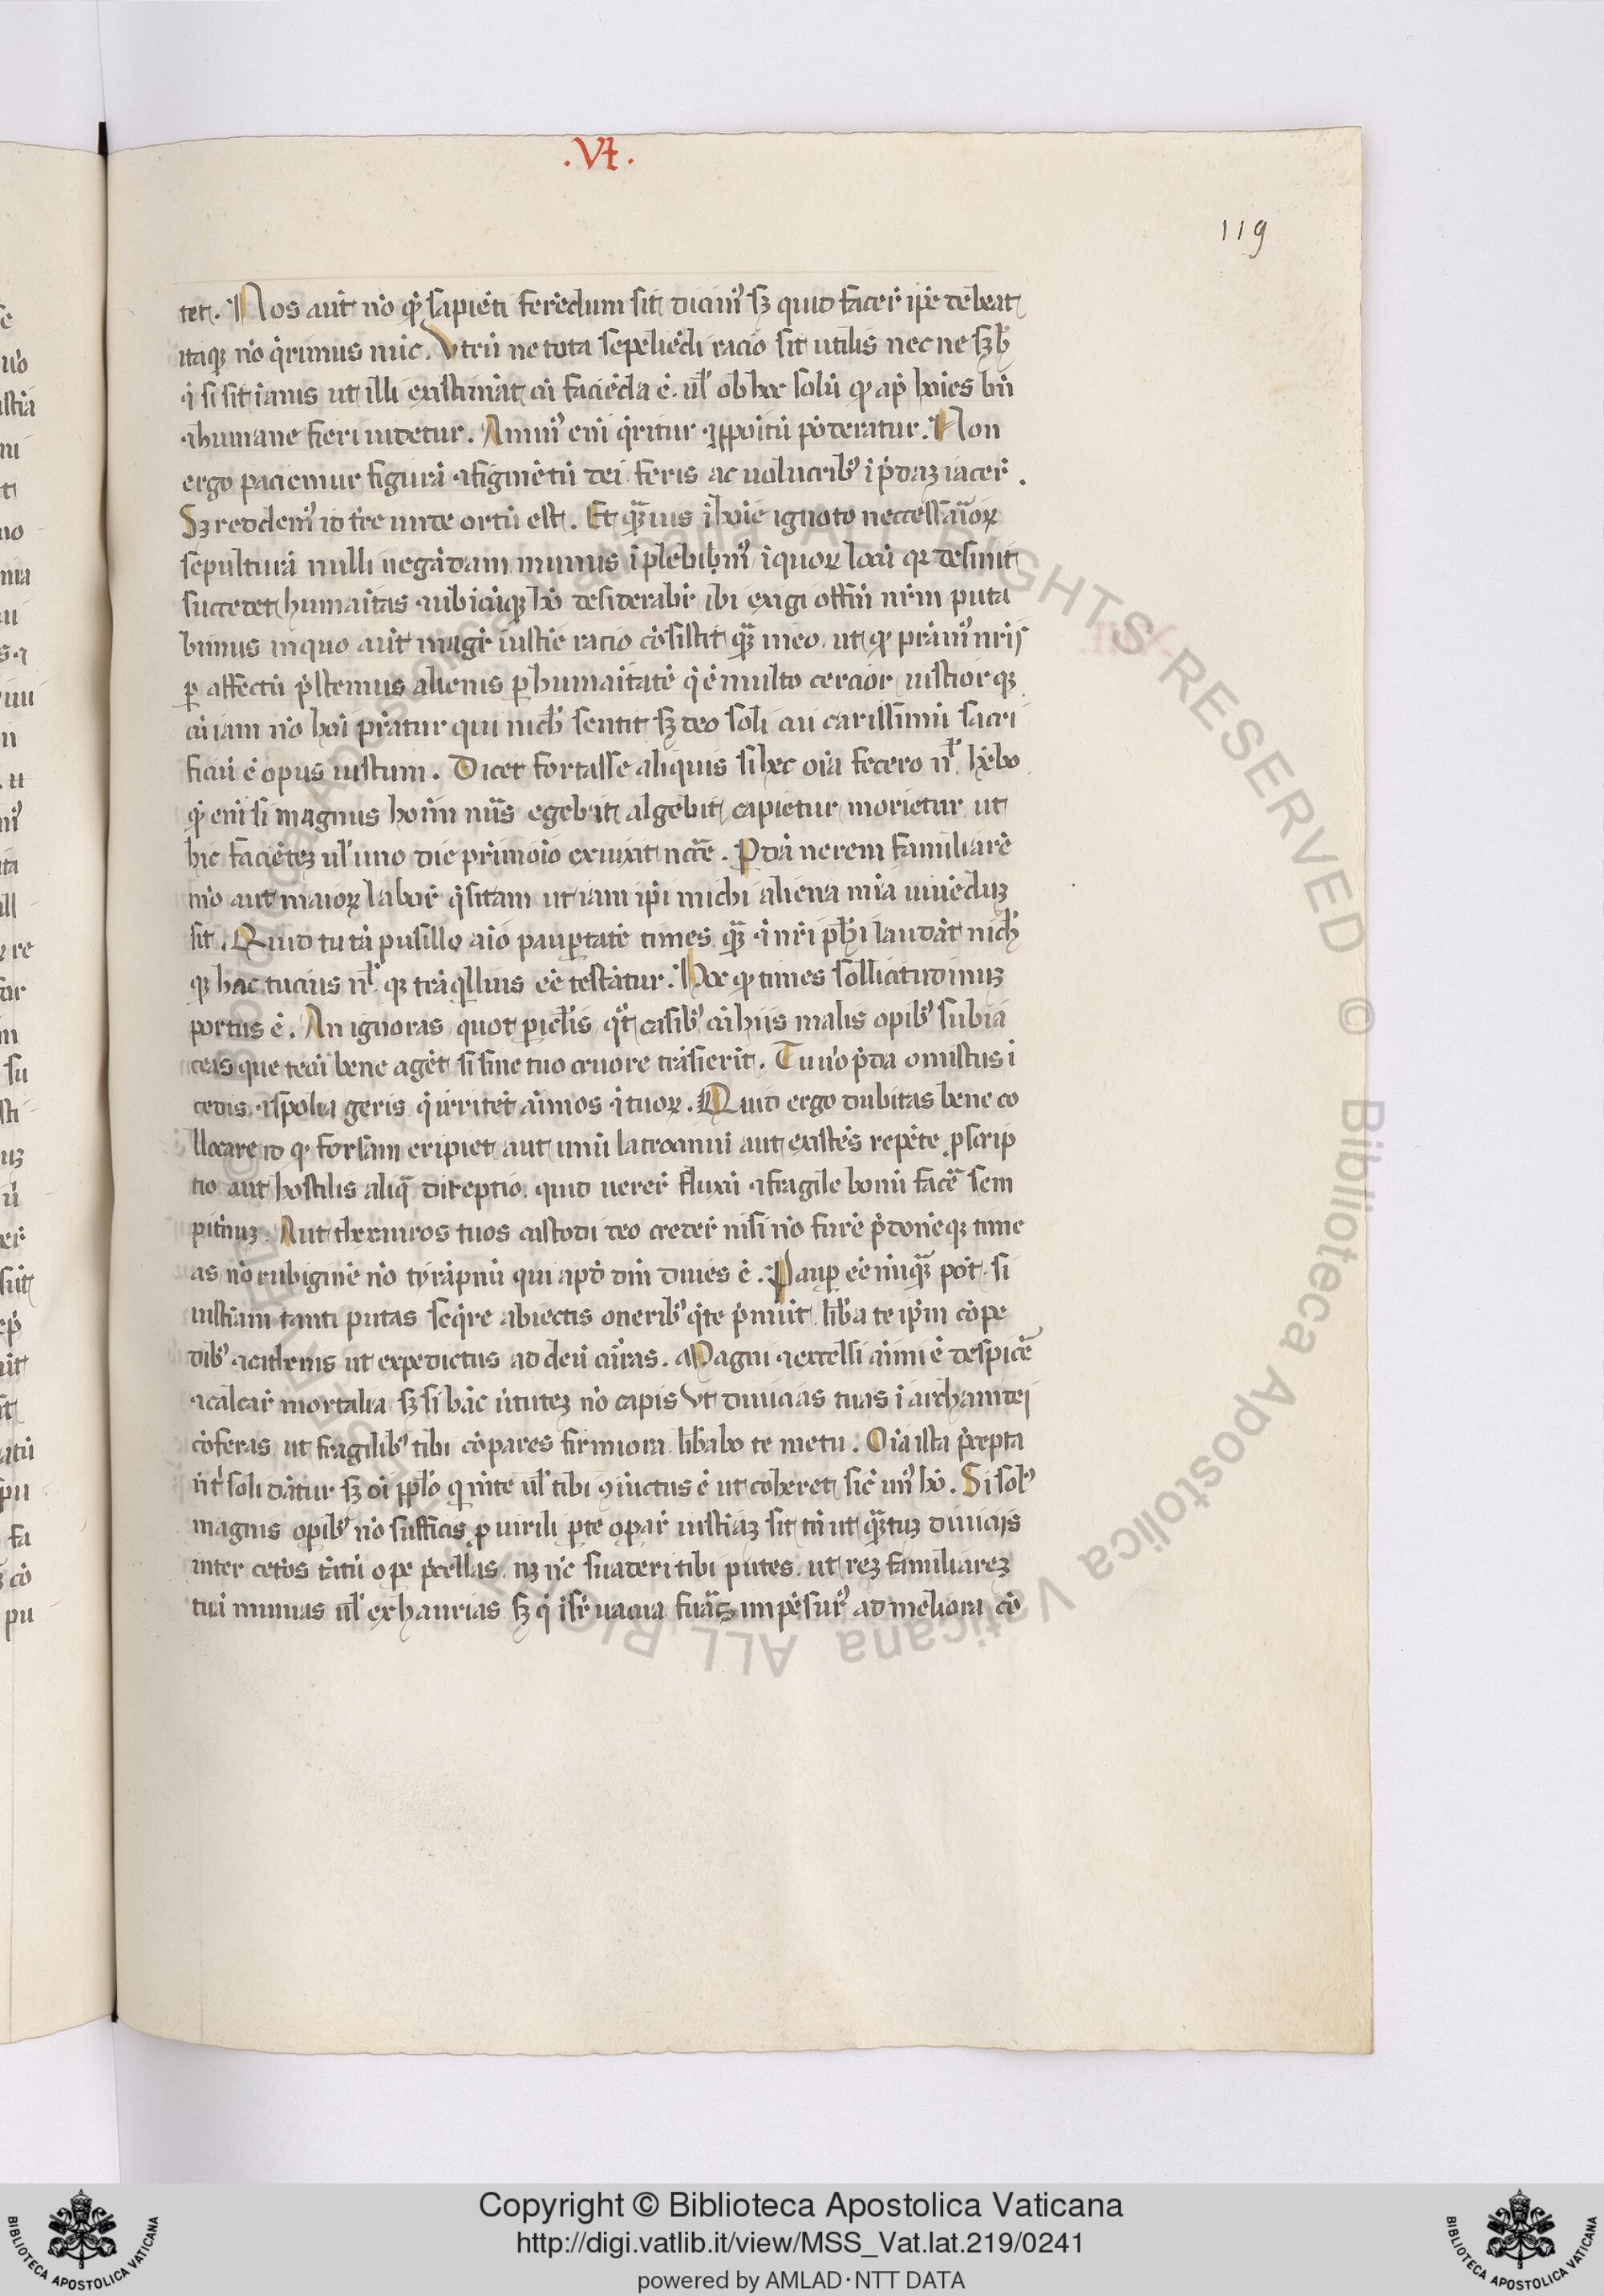 .VI.
119
tet. Nos aut̄ nō qđ sapiēti ferēdum sit dicimꝰ sꝫ quid facer̄ ip̄e debeat
itaqꝫ nō q̄rimus nūc. Vtrū ne tota sepeliēdi racio sit utilis nec ne sꝫ h̄
⁊ si sit ianis ut illi existimāt cū faciēda ē. ul̓ ob hoc solū qđ ap̄ hoīes bn̄
⁊ humane fieri uidetur. Animꝰ enī q̄ritur ⁊ ꝓpoītū pōderatur. Non
ergo paciemur figurā ⁊ figmētū dei feris ac uolucribꝰ ī p̄daꝫ iacer̄.
Sꝫ reddemꝰ id tr̄e unde ortū est. Et qͣꝫuis ī hoīe ignoto neccessaīoꝝ
sepulturā nulli negādam munus īplebibmꝰ ī quoꝝ locū qꝛ desunt
succedet humaītas ⁊ ubicūqꝫ hō desiderabr̄ ibi exigi offm̄ nr̄m puta
bimus in quo aut̄ magr̄ iustīe racio cōsistit qͣꝫ ī eo. ut qđ prāmꝰ nrīs
ꝑ affectū p̄stemus alienis ꝑ humaītatē q̄ ē multo cercior iustiorqꝫ
cū iam nō hoī prātur qui nichl̓ sentit sꝫ deo soli cui carissimū sacri
ficiū ē opus iustum. Dicet fortasse aliquis si hec oīa fecero nl̓. hēbo
qđ enī si magnus hoīm nūs egebit algebit capietur morietur ut
hic faciēteꝫ ul̓ uno die primoīo exiuit nc̄cē. Pdā ne rem familiarē
mō aut maioꝝ labor̄ q̄sitam ut iam ip̄i michi aliena mīa uiuēduꝫ
sit. Quid tu tā pusillo aīo pauꝑtatē times qͣꝫ ⁊ nr̄i ph̄i laudāt nich̓
qꝫ hac tucius nl̓. qꝫ trāqͥllius eē testātur. Hoc qđ times sollicitudinuꝫ
portus ē. An ignoras quot ꝑicl̓is qͦt casibꝰ cū hiis malis opibꝰ subia
ceas que tecū bene agēt si sine tuo cruore trāsierīt. Tu uō p̄da onustus ī
cedis. ⁊ spolia geris q̄ irritēt aīmos ⁊ tuoꝝ. Quid ergo dubitas bene co
llocare id qđ forsam eripiet aut unū latrociniū aut existēs repēte ꝓscrip
tio aut hostilis aliqͣ direptio. quid uerer̄ fluxū ⁊ fragile bonū facē sem
pit̄nuꝫ. Aut thexuros tuos custodi deo creder̄ nisi nō furē p̄donēqꝫ time
as nō rubiginē nō tyrāpnū qui apd̄ dm̄ diues ē. Pauꝑ eē nūqͣꝫ pōt. si
iustīam tanti putas seqͥre abiectis oneribꝰ q̄ te p̄mūt. lib̄a te ip̄m cōpe
dibꝰ ⁊ cathenis ut expedictus ad deū cūras. Magni ⁊ excelsi aīmi ē despicē
⁊ calcar̄ mortalia sꝫ si hāc ūtuteꝫ nō capis Vt diuicias tuas ī archam dei
cōferas ut fragilibꝰ tibi cōpares firmiora lib̄abo te metu. Oīa ista p̄cepta
nō t̓ soli dātur sꝫ oī ꝓplō qͥ mēte ul̓ tibi ꝯiūctus ē ut coheret sic unꝰ hō. Si solꝰ
magnis opibꝰ nō sufficis ꝑ uirili ꝑte opar̄ iustīaꝫ sit tn̄ ut qͣꝫtuꝫ diuicijs
inter cetōs tātū ope p̄cellas. nꝫ nc̄ suaderi tibi putes. ut reꝫ familiareꝫ
tuā minuas ul̓ exhaurias sꝫ q̄ ī sr̄ uacua fuāt impēsurꝰ ad meliora cō
Copyright © Biblioteca Apostolica Vaticana
http://digi.vatlib.it/view/MSS_Vat.lat.219/0241
powered by AMLAD·NTT DATA
BIBLIOTECA APOSTOLICA VATICANA
BIBLIOTECA APOSTOLICA VATICANA